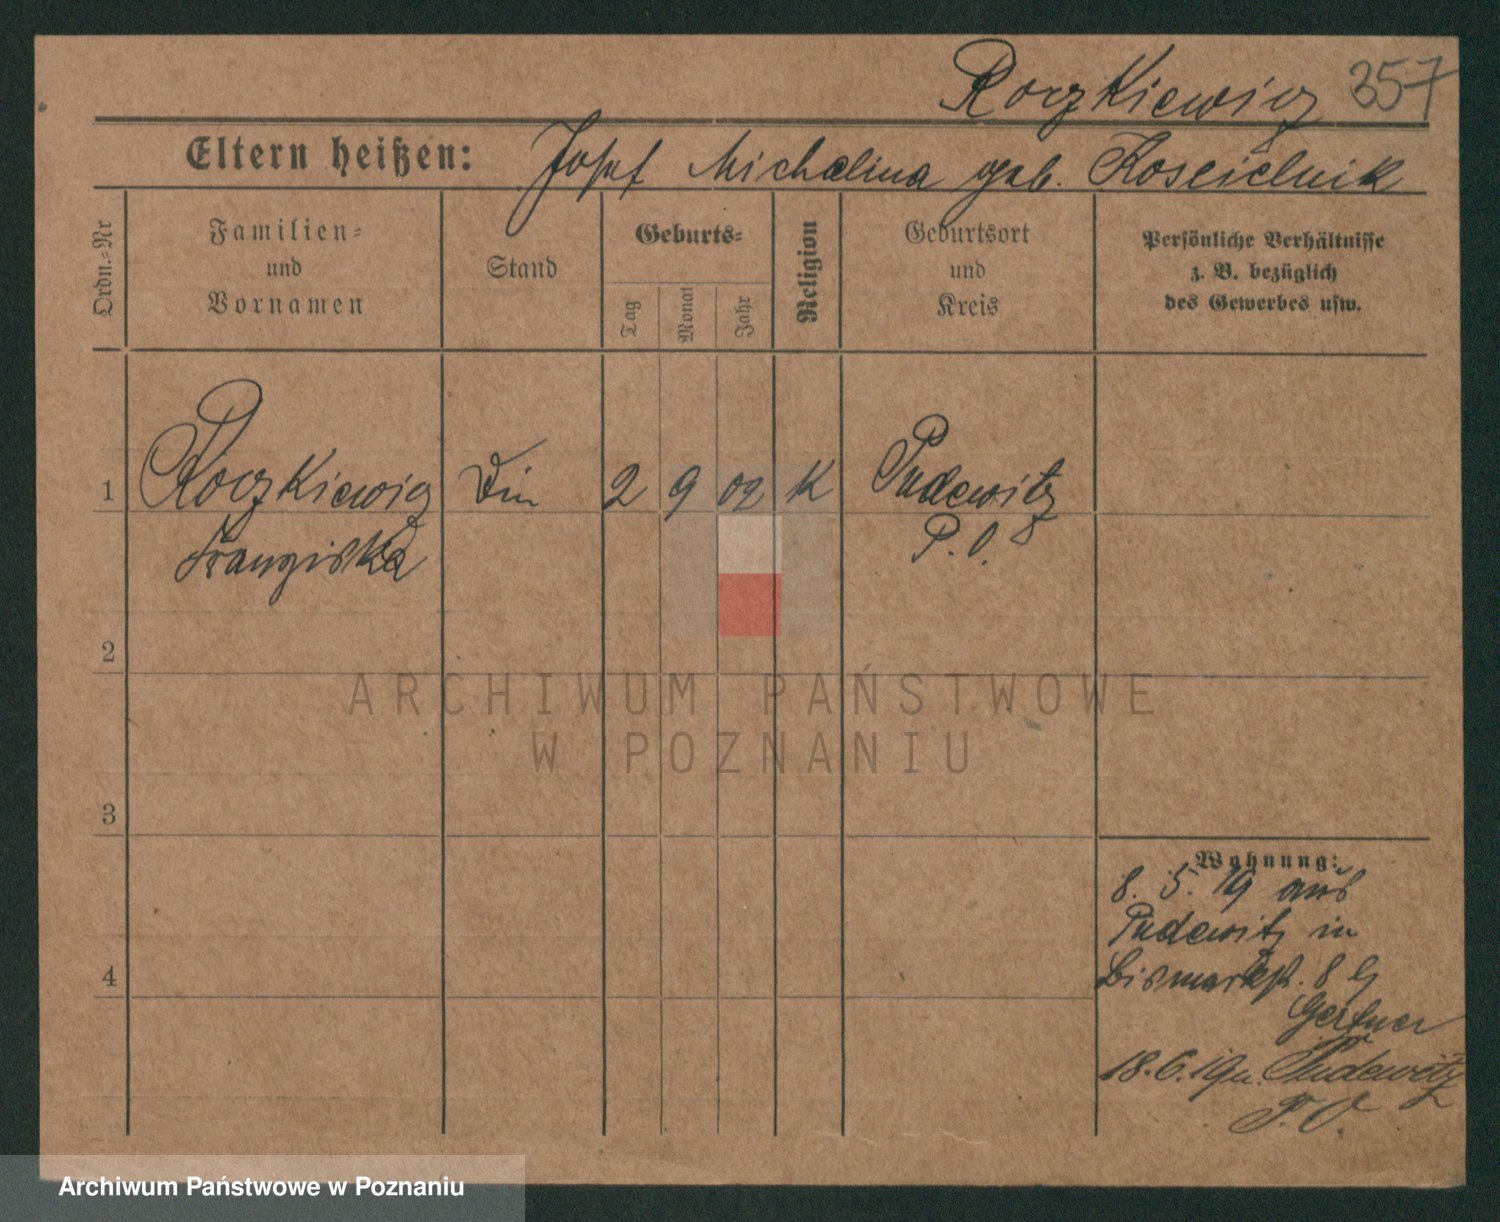 Roczkiewicz 357
Eltern heißen: Josef Michalina geb. Koscielnik
Ordn.-Nr
Familien-
und
Vornamen
Stand
Geburts-
Tag
Monat
Jahr
Religion
Geburtsort
und
Kreis
Persönliche Verhältnisse
z. B. bezüglich
des Gewerbes usw.
1 Roczkiewicz Din 2 9 02 K Pudewitz
Franziska P. O.
2
ARCHIWUM PAŃSTWOWE
W POZNANIU
3
Wohnung:
8. 5. 19 aus
Pudewitz in
Bismarkst. 8
4
18.6.19 n. Pudewitz
P. O.
Archiwum Państwowe w Poznaniu